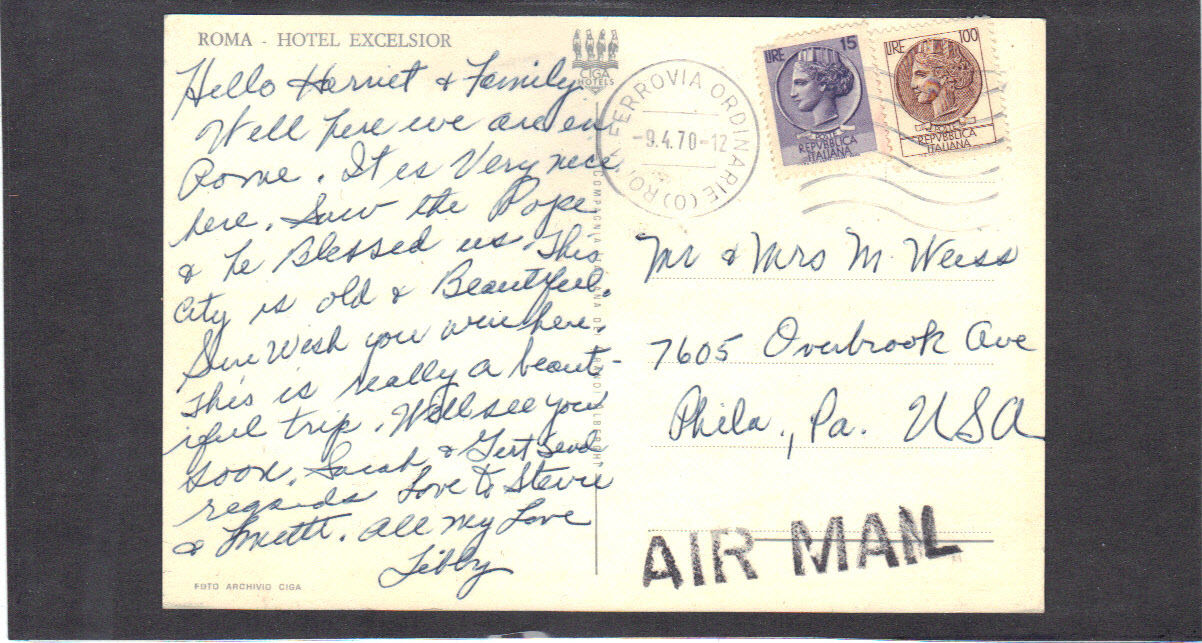 ROMA - HOTEL EXCELSIOR
CIGA
HOTELS
Hello Harriet & Family
Well here we are in
Rome. It is Very nice
here. Saw the Pope
& he Blessed us. This
City is old & Beautiful.
Sure Wish you were here.
This is really a beaut-
iful trip. Will see you
soon. Sarah & Gert Send
regards Love to Stevie
& . All my Love
Libby
FOTO ARCHIVIO CIGA
COMPAGNIA ITALIANA DEI GRANDI ALBERGHI
FERROVIA ORDINARIE (O) RO
-9.4.70-12
LIRE 15
POSTE
REPVBBLICA
ITALIANA
LIRE 100
POSTE
REPVBBLICA
ITALIANA
Mr & Mrs M. Weiss
7605 Overbrook Ave
Phila., Pa. USA
AIR MAIL